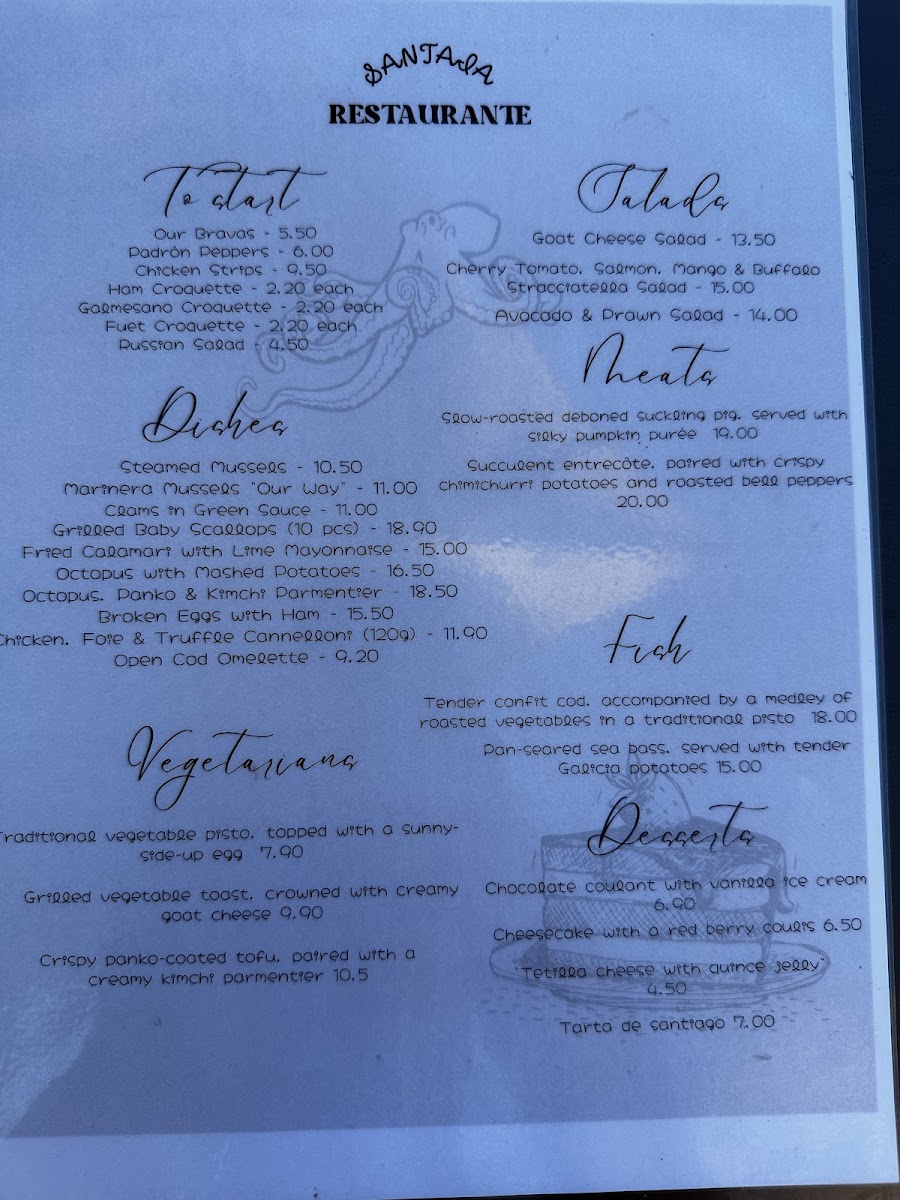 SANTAIA
RESTAURANTE
To start
Our Bravas - 5.50
Padròn Peppers - 6.00
Chicken Strips - 9.50
Ham Croquette - 2.20 each
Galmesano Croquette - 2.20 each
Fuet Croquette - 2.20 each
Russian Salad - 4.50
Dishes
Steamed Mussels - 10.50
Marinera Mussels "Our Way" - 11.00
Clams in Green Sauce - 11.00
Grilled Baby Scallops (10 pcs) - 18.90
Fried Calamari with Lime Mayonnaise - 15.00
Octopus with Mashed Potatoes - 16.50
Octopus, Panko & Kimchi Parmentier - 18.50
Broken Eggs with Ham - 15.50
Chicken, Foie & Truffle Cannelloni (120g) - 11.90
Open Cod Omelette - 9.20
Vegetarians
Traditional vegetable pisto, topped with a sunny-
side-up egg 7.90
Grilled vegetable toast, crowned with creamy
goat cheese 9.90
Crispy panko-coated tofu, paired with a
creamy kimchi parmentier 10,5
Salads
Goat Cheese Salad - 13.50
Cherry Tomato, Salmon, Mango & Buffalo
Stracciatella Salad - 15.00
Avocado & Prawn Salad - 14.00
Meats
Slow-roasted deboned suckling pig, served with
silky pumpkin purée 19.00
Succulent entrecôte, paired with crispy
chimichurri potatoes and roasted bell peppers
20.00
Fish
Tender confit cod, accompanied by a medley of
roasted vegetables in a traditional pisto 18.00
Pan-seared sea bass, served with tender
Galicia potatoes 15.00
Desserts
Chocolate coulant with vanilla ice cream
6.90
Cheesecake with a red berry coulis 6.50
"Tetilla cheese with quince jelly"
4.50
Tarta de santiago 7.00